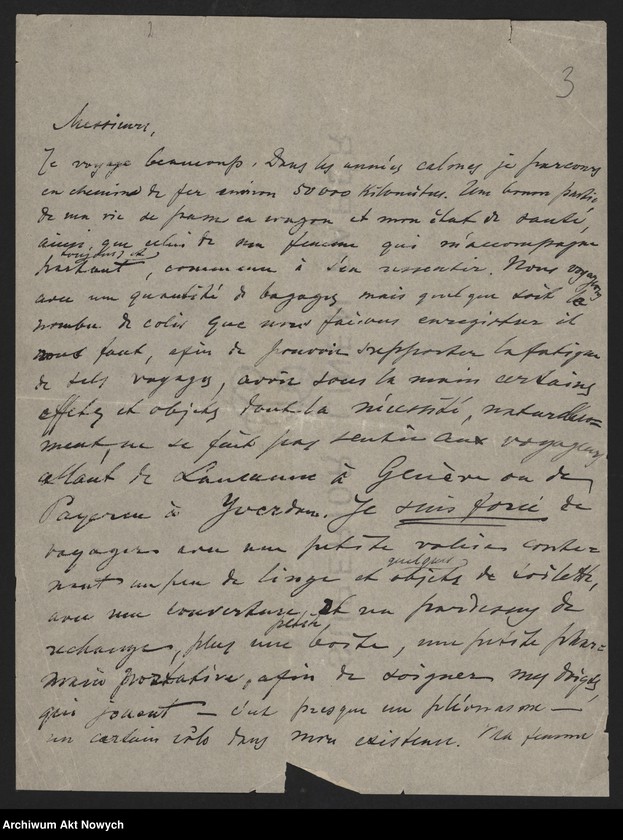 3
Messieurs,
Je voyage beaucoup. Dans les années calmes je parcours
en chemins de fer environ 50000 kilomètres. Une bonne partie
de ma vie se passe en wagon et mon état de santé,
ainsi que celui de ma femme qui m'accompagne
toujours et
partout, commence à s'en ressentir. Nous voyageons
avec une quantité de bagages mais quelque soit le
nombre de colis que nous faisons enregistrer il
nous faut, afin de pouvoir supporter la fatigue
de tels voyages, avoir sous la main certains
effets et objets dont la nécessité, naturelle=
ment, ne se fait pas sentir aux voyageurs
allant de Lausanne à Genève ou de
Payerne à Yverdon. Je suis forcé de
voyager avec une petite valise conte=
nant un peu de linge et quelques objets de toilette,
avec une couverture, et un pardessus de
rechange, plus une petite boîte, une petite phar=
macie portative, afin de soigner mes doigts,
qui jouent — c'est presque un pléonasme —
un certain rôle dans mon existence. Ma femme
Archiwum Akt Nowych